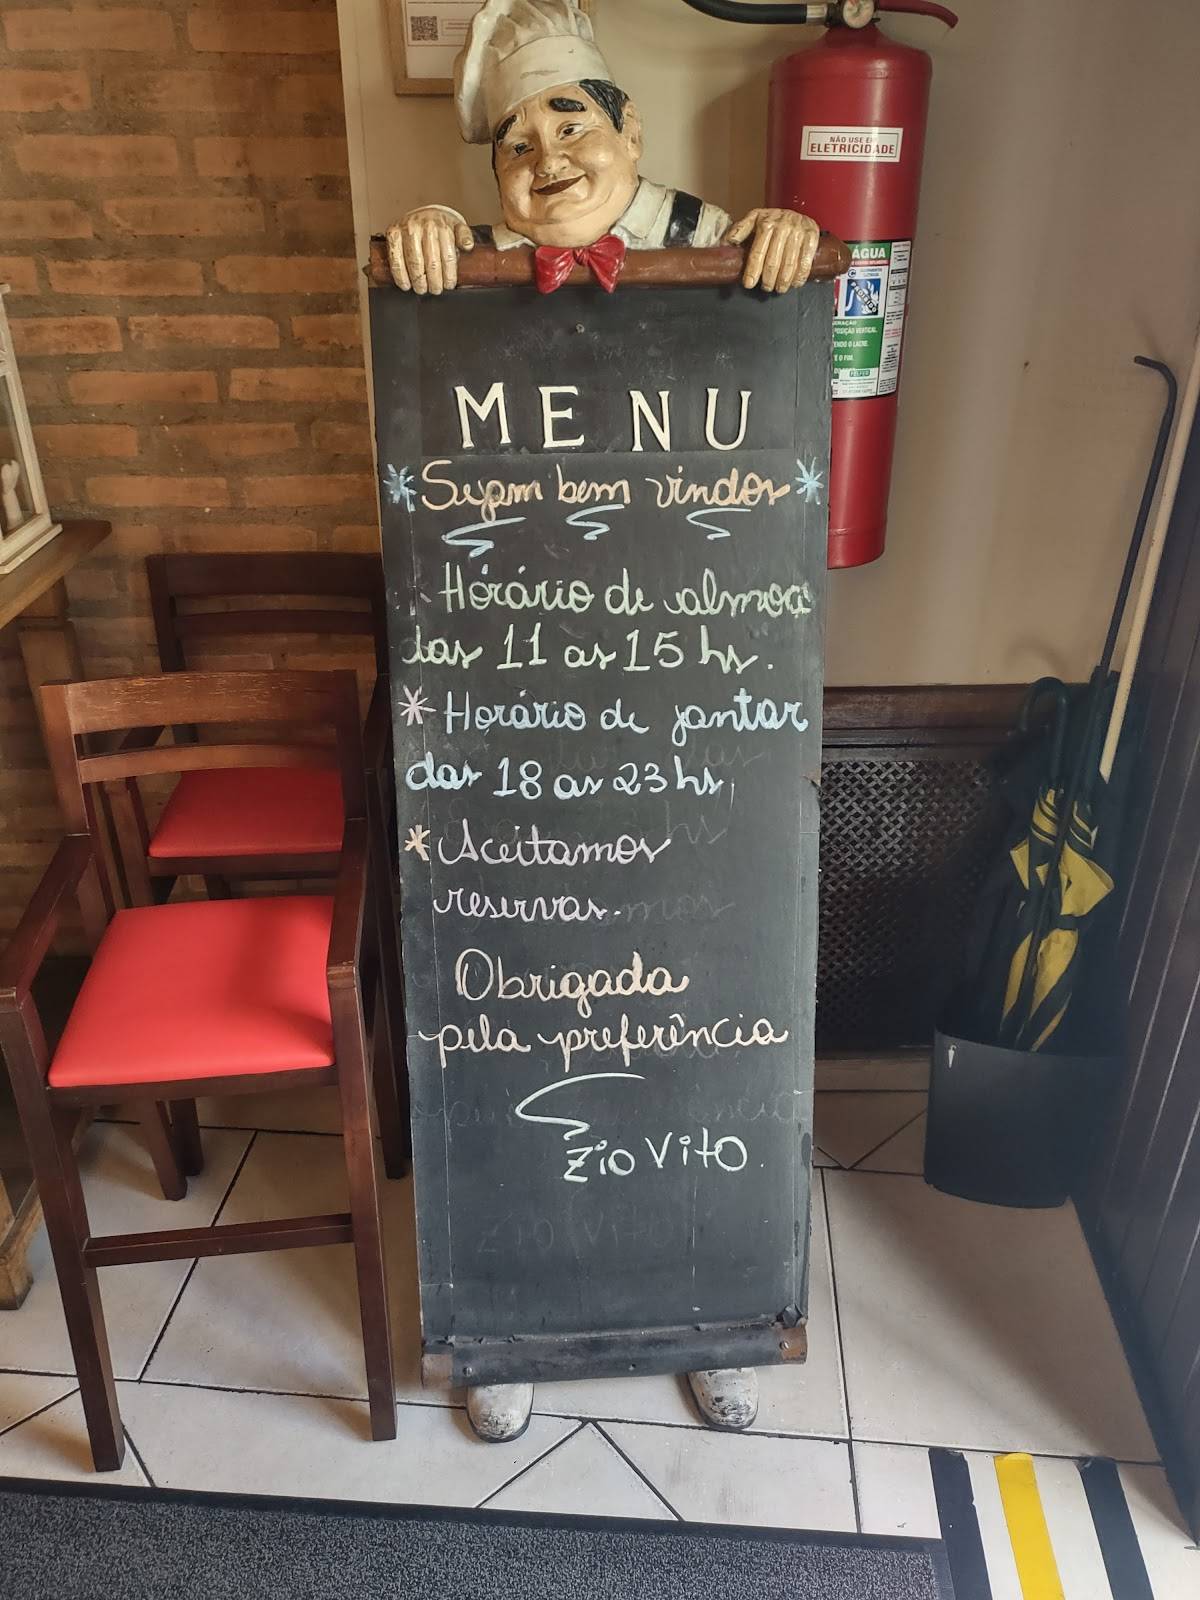 NÃO USE EM
ELETRICIDADE
ÁGUA
MENU
Sejam bem vindos
Horário de almoço
das 11 as 15 hs.
Horário de jantar
das 18 as 23 hs.
Aceitamos
reservas.
Obrigada
pela preferência
Zio Vito.